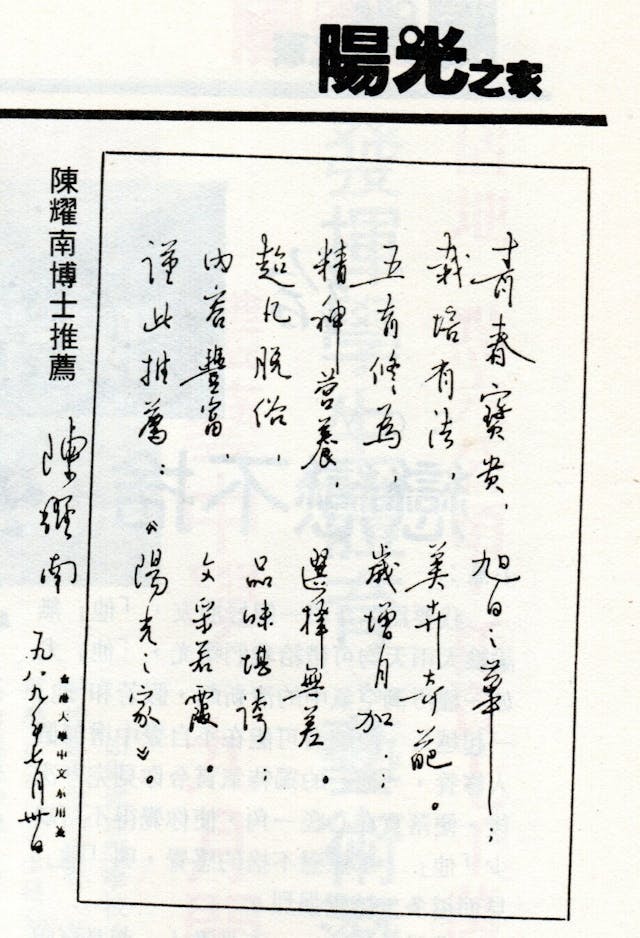 陽光之家
青春寶貴，旭日之華；
栽培有法，美卉奇葩。
五育修為，歲增月加；
精神營養，選擇無差。
超凡脫俗，品味堪誇；
內容豐富，文采若霞。
謹此推薦：《陽光之家》。
陳耀南博士推薦
陳耀南
香港大學中文系用箋
一九八九年七月卅日